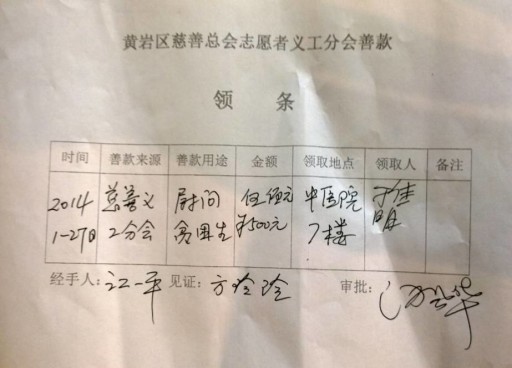 黄岩区慈善总会志愿者义工分会善款
领 条
时间 善款来源 善款用途 金额 领取地点 领取人 备注
2014 慈善义 慰问 伍佰元 中医院
1-27日 工分会 贫困生 ¥500元 7楼 明
经手人: 江一平 见证: 方玲玲 审批: